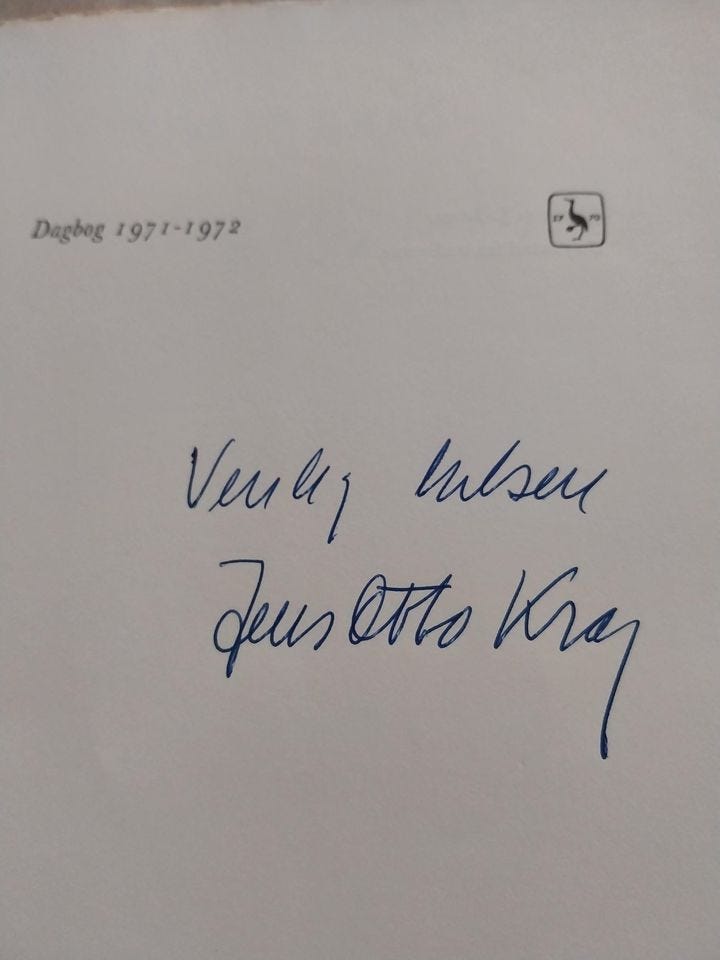 Dagbog 1971-1972
17 70
Venlig hilsen
Jens Otto Krag